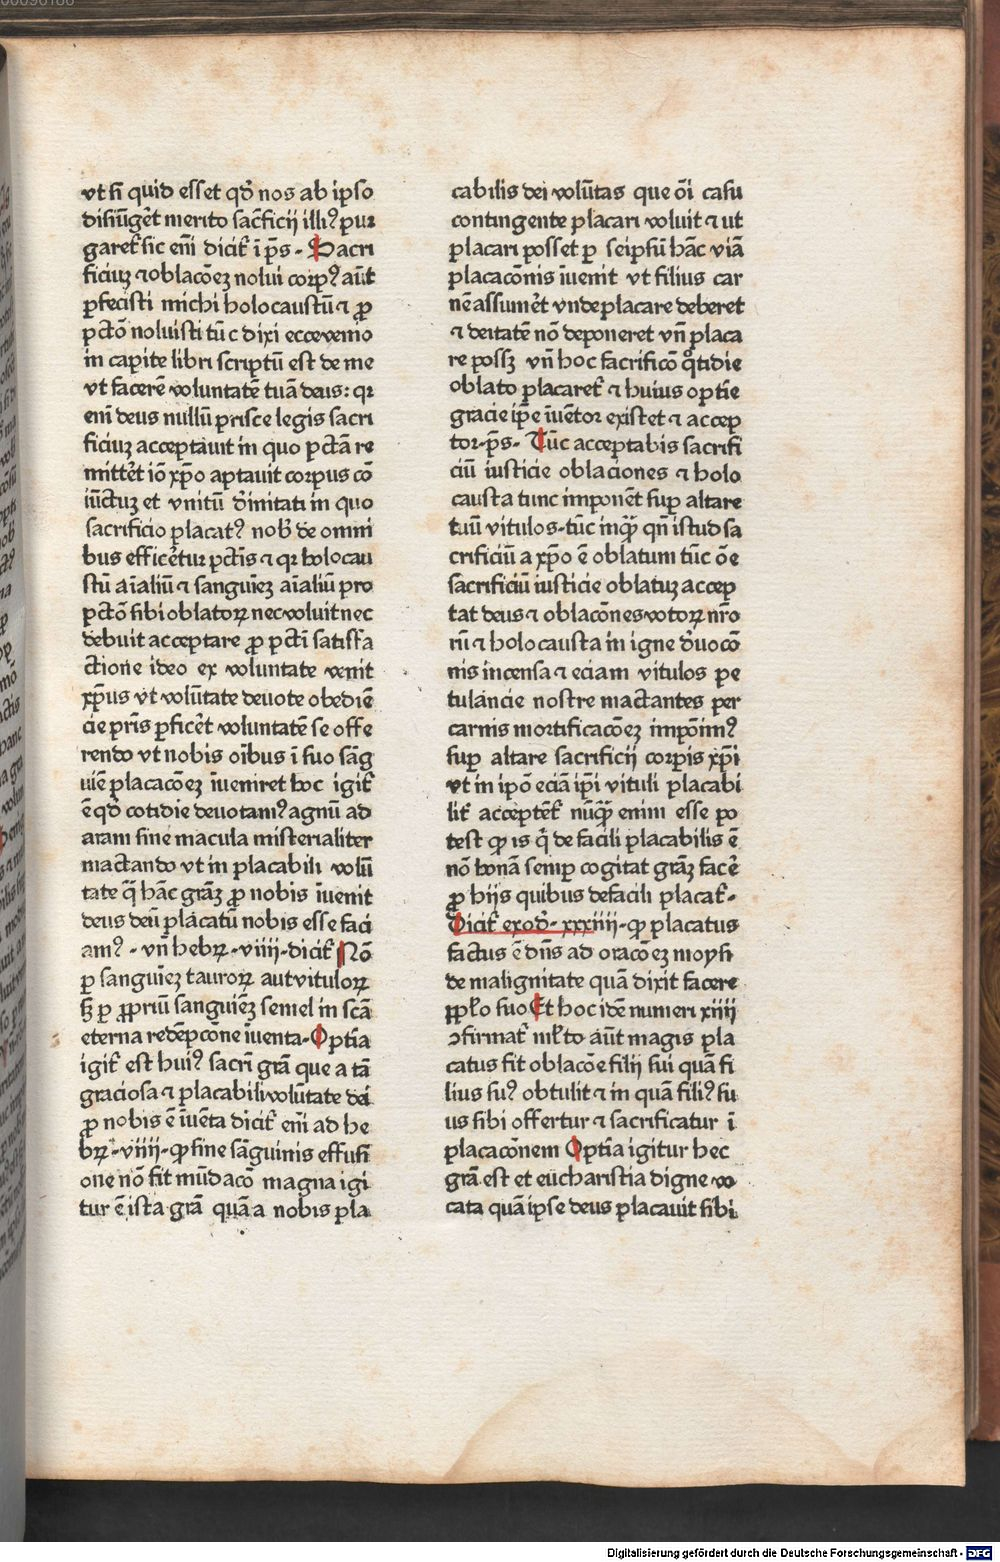 vt si quid esset qđ nos ab ipso
disiūgēt merito sacͥficij illiꝰ pur
garetᷣ sic eni̅ dicitᷣ i p̄s · Sacri
ficiuꝫ ⁊ oblacōeꝫ noluı corpꝰ aūt
ꝑfecisti michi holocaustū ⁊ ꝓ
pctō noluisti tūc dixi ecce venio
in capite libri scriptū est de me
vt facerē voluntatē tuā deus : qꝛ
eni̅ deus nullū prisce legis sacri
ficiuꝫ acceptauit in quo pctā re
mittēt iō xp̄o aptauit corpus cō
iūctuꝫ et vnitū diuinitati in quo
sacrificio placatꝰ nob̄ de omni
bus efficētur pctīs ⁊ qꝛ holocau
stū aı̅aliū ⁊ sanguīeꝫ aı̅aliū pro
pctō sibi oblatoꝝ nec voluit nec
debuit acceptare ꝓ pctı̅ satisfa
ctione ideo ex voluntate venit
xp̄us vt volūtate deuote obediē
cie pr̄is ꝑficēt voluntatē se offe
rendo vt nobis oı̅bus i suo sāg
uiē placacōeꝫ iueniret hoc igitᷣ
ē qđ cotidie deuotamꝰ agnū ad
aram sine macula misterialiter
mactando vt in placabili volū
tate q̄ hāc grāꝫ ꝓ nobis iuenit
deus deū placatū nobis esse faci
amꝰ · vn̄ hebꝝ · viiii · dicitᷣ Nō
ꝑ sanguīeꝫ tauroꝝ aut vituloꝝ
sꝫ ꝑ ꝓpriū sanguīeꝫ semel in scā
eterna redēpcōne iuenta · Optīa
igitᷣ est huiꝰ sacri grā que a tā
graciosa ⁊ placabili volūtate dei
ꝓ nobis ē iuēta dicitᷣ eni̅ ad he
bꝝ · viiii · ꝙ sine sāguinis effusi
one nō fit mūdacō magna igi
tur ē ista grā quā a nobis pla
cabilis dei volūtas que oı̅ casu
contingente placari voluit ⁊ ut
placari posset ꝑ seipsū hāc viā
placacōnis iuenit vt filius car
nē assumēt vnde placare deberet
⁊ deitatē nō deponeret vn̄ placa
re possꝫ vn̄ hoc sacrificō qͦtidie
oblato placaretᷣ ⁊ huius optīe
gracie ip̄e iuētor existet ⁊ accep
tor · p̄s · Tūc acceptabis sacrifi
ciū iusticie oblaciones ⁊ holo
causta tunc imponēt sup altare
tuū vitulos · tūc inqͣ̄ qn̄ istud sa
crificiū a xp̄o ē oblatum tūc ōe
sacrificiū iusticie oblatuꝫ accep
tat deus ⁊ oblacōnes votoꝝ nr̄o
rū ⁊ holocausta in igne deuocō
nis incensa ⁊ eciam vitulos pe
tulancie nostre mactantes per
carnis mortificacōeꝫ impōimꝰ
sup altare sacrificij corpis xp̄i
vt in ip̄o eciā ip̄i vituli placabi
litᷣ acceptētᷣ nūqͣ̄ enim esse po
test ꝙ is q̄ de facili placabilis ē
nō bonā semp cogitat grāꝫ facē
ꝓ hijs quibus defacili placatᷣ ·
Dicitᷣ exođ · xxxiiii · ꝙ placatus
factus ē dn̄s ad oracōeꝫ moysi
de malignitate quā dixit facere
pplo suo Et hoc idē numeri xiiii
ɔfirmatᷣ mlto aūt magis pla
catus fit oblacōe filij sui quā fi
lius suꝰ obtulit ⁊ in quā filiꝰ su
us sibi offertur ⁊ sacrificatur i
placacōnem Optīa igitur hec
grā est et eucharistia digne vo
cata quā ipse deus placauit sibi
Digitalisierung gefördert durch die Deutsche Forschungsgemeinschaft - DFG